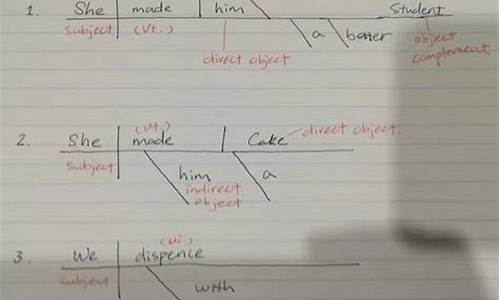 1. She made him Student
subject (Vt.) a better object
direct object complement
(Vt.)
2. She made Cake direct object.
subject him a
indirect
object
(Vi)
3. We dispence
subject with